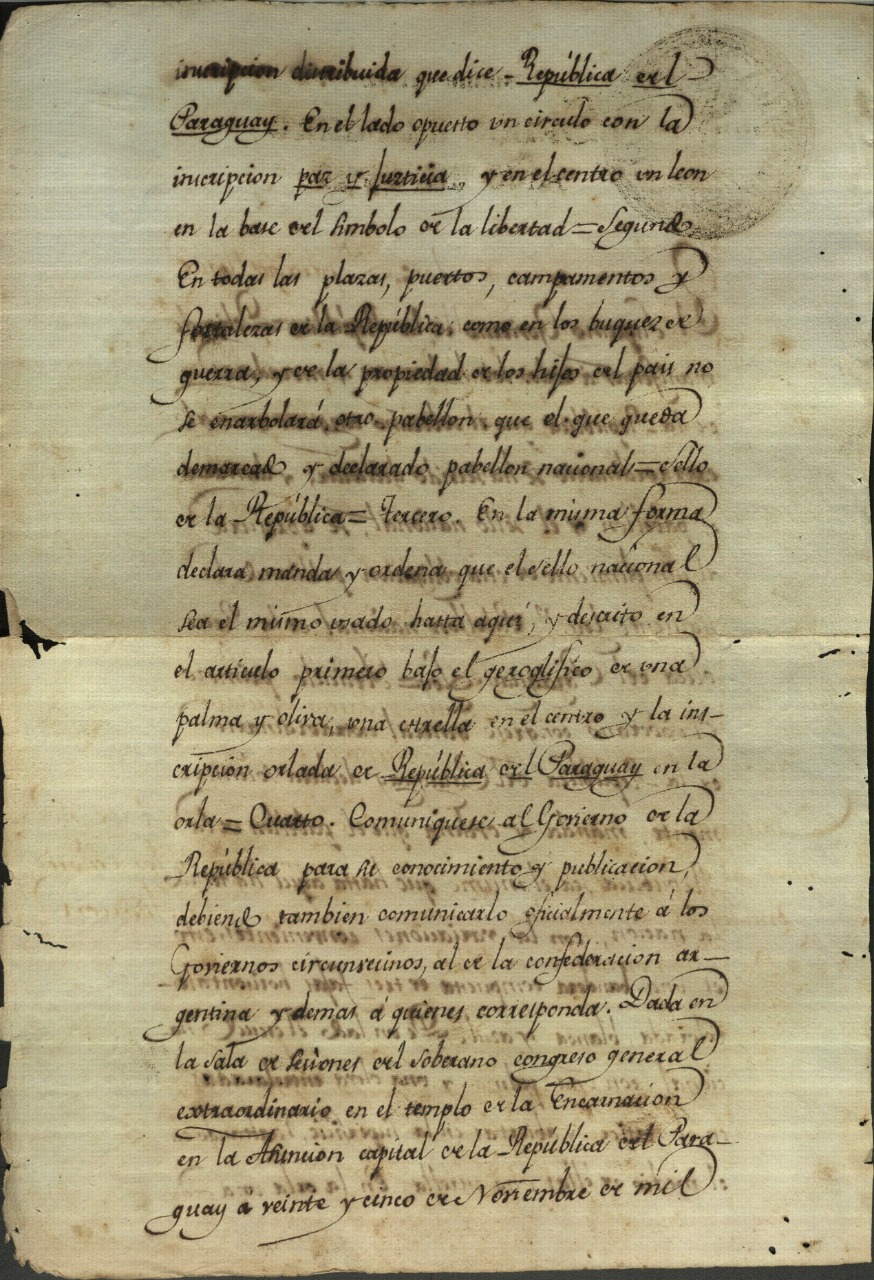 inscripcion distribuida que dice - República del
Paraguay. En el lado opuesto un circulo con la
inscripcion paz y Justicia, y en el centro un leon
en la base del simbolo de la libertad = Segundo
En todas las plazas, puertos, campamentos y
fortalezas de la República, como en los buques de
guerra, y de la propiedad de los hijos del pais no
se enarbolará otro pabellon que el que queda
demarcado y declarado pabellon nacional = sello
de la República = Tercero. En la misma forma
declara manda y ordena que el sello nacional
sea el mismo usado hasta aquí, y descrito en
el artículo primero bajo el geroglifico de una
palma y oliva, una estrella en el centro y la ins-
cripción orlada de República del Paraguay en la
orla = Cuarto. Comuníquese al Govierno de la
República para su conocimiento y publicacion,
debiendo tambien comunicarlo oficialmente á los
Goviernos circunvecinos, al de la confederacion ar-
gentina y demas á quienes corresponda. Dada en
la sala de sesiones del soberano congreso general
extraordinario en el templo de la Encarnacion
en la Asuncion capital de la República del Para-
guay á veinte y cinco de Noviembre de mil